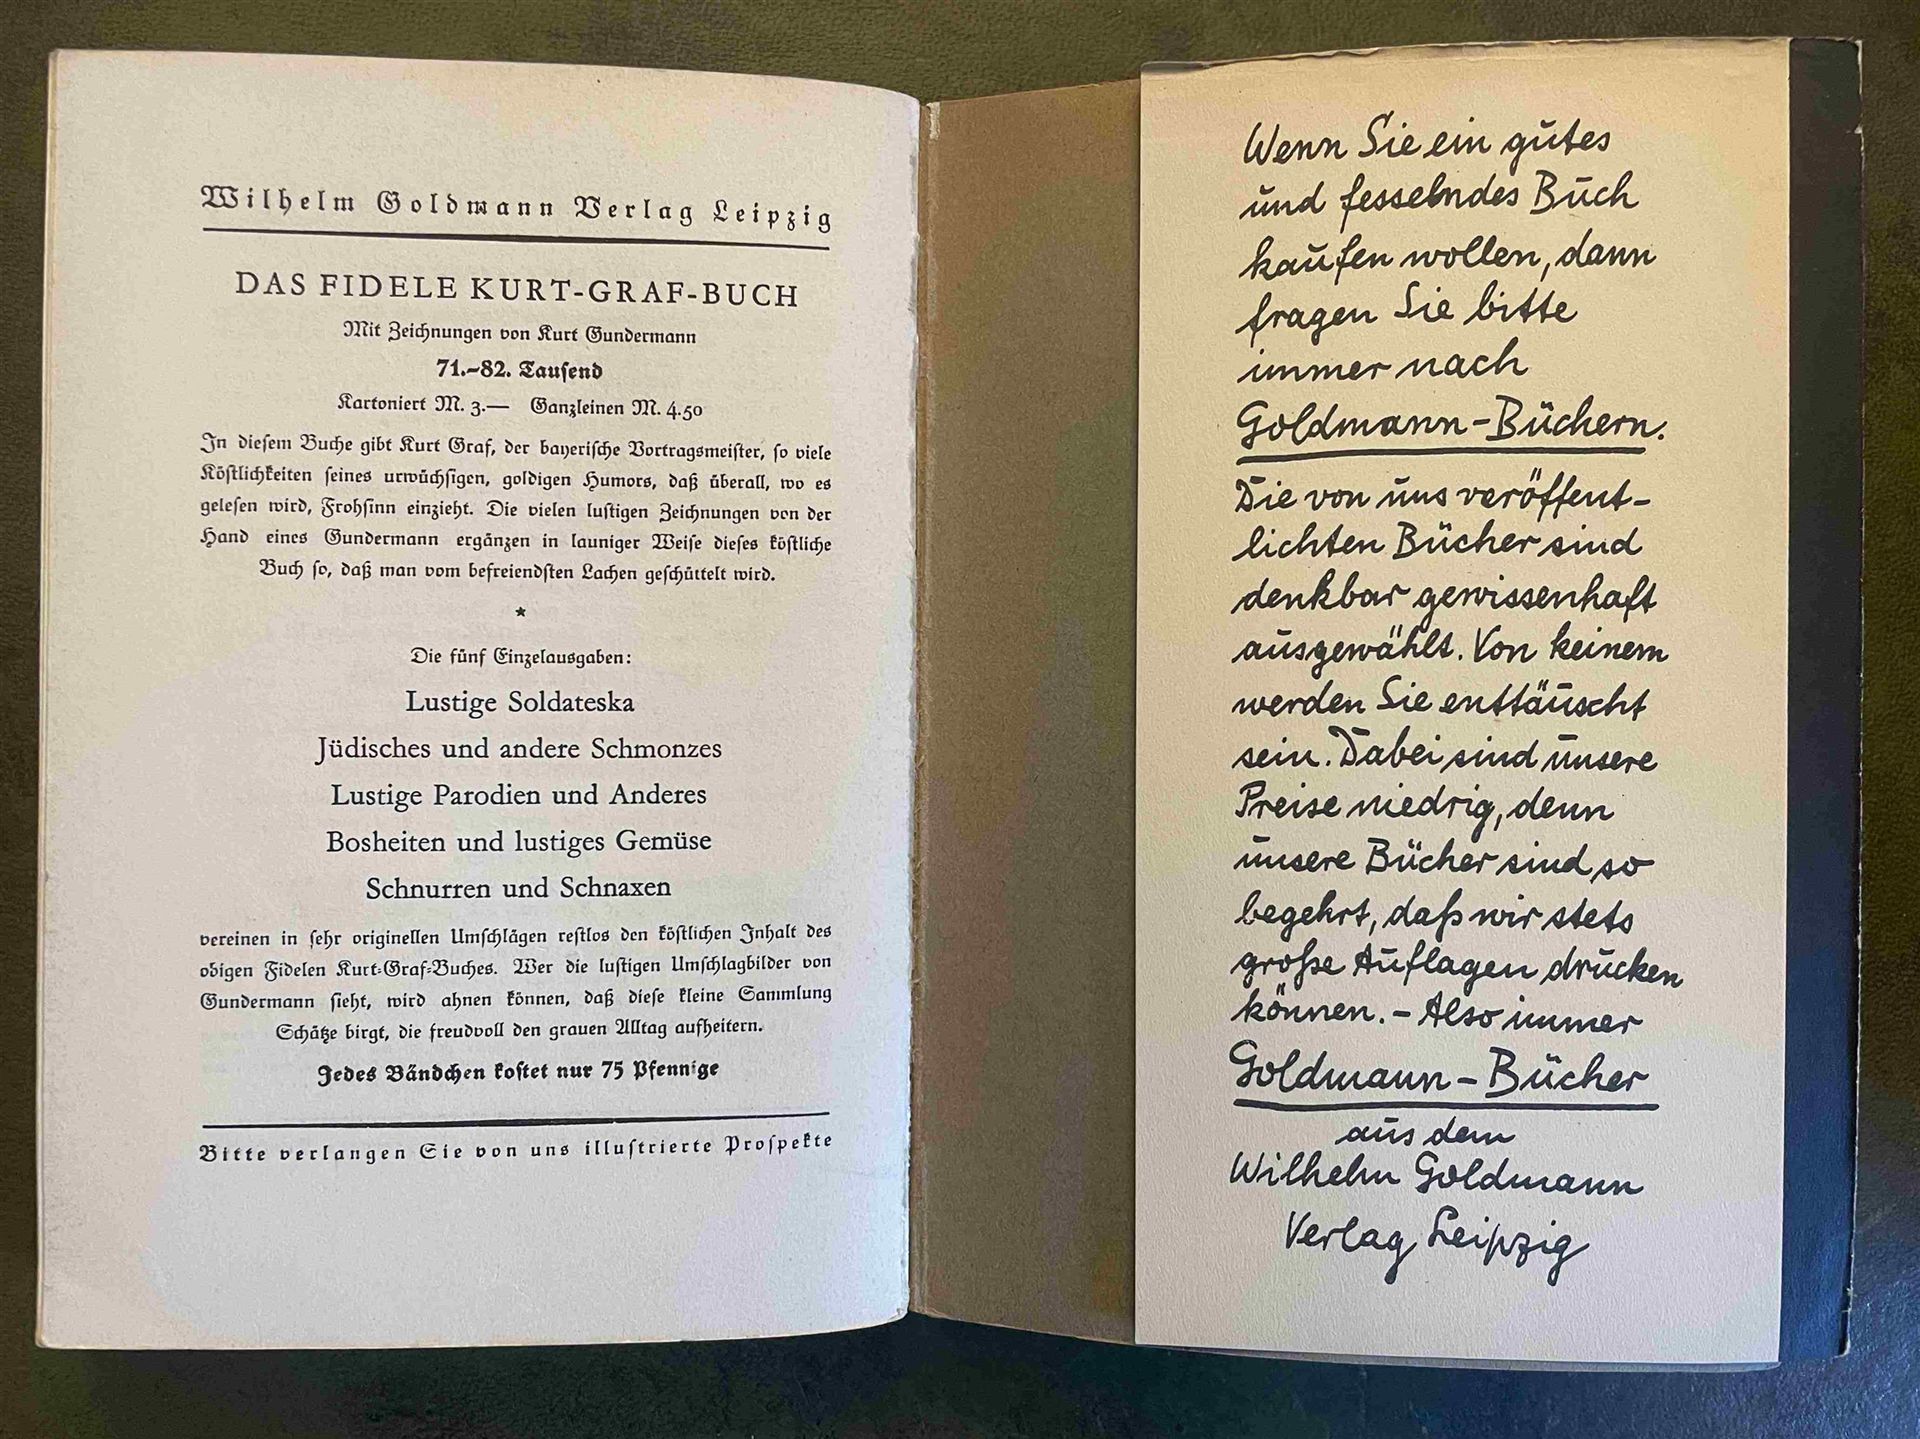 Wilhelm Goldmann Verlag Leipzig
DAS FIDELE KURT-GRAF-BUCH
Mit Zeichnungen von Kurt Gundermann
71.–82. Tausend
Kartoniert M. 3.— Ganzleinen M. 4.50
In diesem Buche gibt Kurt Graf, der bayerische Vortragsmeister, so viele
Köstlichkeiten seines urwüchsigen, goldigen Humors, daß überall, wo es
gelesen wird, Frohsinn einzieht. Die vielen lustigen Zeichnungen von der
Hand eines Gundermann ergänzen in launiger Weise dieses köstliche
Buch so, daß man vom befreiendsten Lachen geschüttelt wird.
*
Die fünf Einzelausgaben:
Lustige Soldateska
Jüdisches und andere Schmonzes
Lustige Parodien und Anderes
Bosheiten und lustiges Gemüse
Schnurren und Schnaxen
vereinen in sehr originellen Umschlägen restlos den köstlichen Inhalt des
obigen Fidelen Kurt-Graf-Buches. Wer die lustigen Umschlagbilder von
Gundermann sieht, wird ahnen können, daß diese kleine Sammlung
Schätze birgt, die freudvoll den grauen Alltag aufheitern.
Jedes Bändchen kostet nur 75 Pfennige
Bitte verlangen Sie von uns illustrierte Prospekte
Wenn Sie ein gutes
und fesselndes Buch
kaufen wollen, dann
fragen Sie bitte
immer nach
Goldmann-Büchern.
Die von uns veröffent-
lichten Bücher sind
denkbar gewissenhaft
ausgewählt. Von keinem
werden Sie enttäuscht
sein. Dabei sind unsere
Preise niedrig, denn
unsere Bücher sind so
begehrt, daß wir stets
große Auflagen drucken
können. – Also immer
Goldmann-Bücher
aus dem
Wilhelm Goldmann
Verlag Leipzig